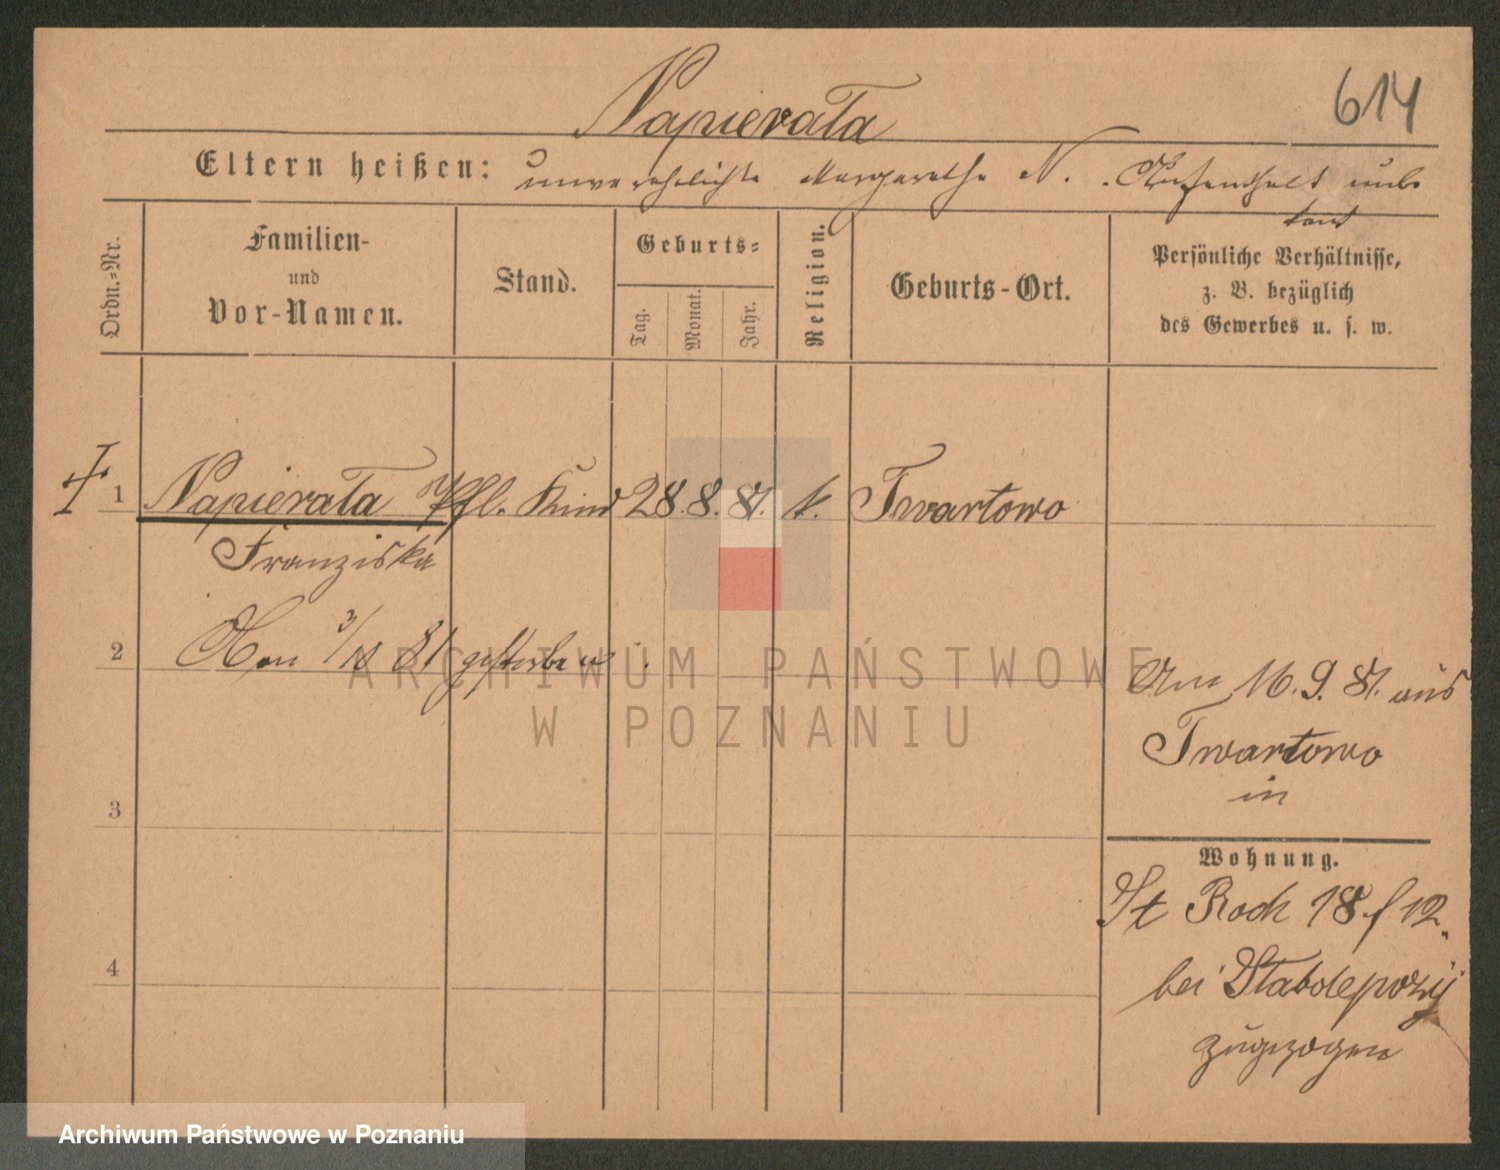 614
Napierata
Eltern heißen: unverehelichte Margarethe N. Aufenthalt unbe
kant
Ordn.-Nr.
Familien-
und
Vor-Namen.
Stand.
Geburts-
Tag.
Monat.
Jahr.
Religion.
Geburts-Ort.
Persönliche Verhältnisse,
z. B. bezüglich
des Gewerbes u. s. w.
1 Napierata Pfl. Kind 28. 8. 81. k. Twartowo
Franziska
2 gestorben.
Am 16. 9. 81. aus
Twartowo
in
3
Wohnung.
St Roch 18 f 12.
bei
zugezogen
4
ARCHIWUM PAŃSTWOWE
W POZNANIU
Archiwum Państwowe w Poznaniu